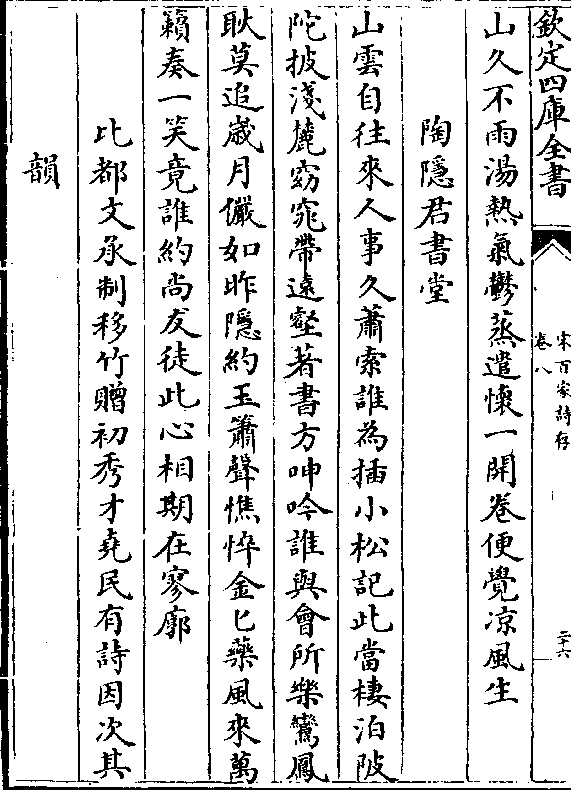 欽定四庫全書
宋百家詩存
卷八
二十六
山久不雨湯熱氣鬱蒸遣懷一開卷便覺凉風生
陶隱君書堂
山雲自往來人事久蕭索誰為插小松記此當棲泊陂
陀披淺麓窈窕帶遠壑著書方呻吟誰與會所樂鸞鳳
耿莫追嵗月儼如昨隱約玉簫聲憔悴金匕藥風來萬
籟奏一笑竟誰約尚友徒此心相期在寥廓
比都文承制移竹贈初秀才堯民有詩因次其
韻